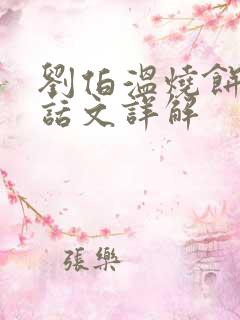 劉伯溫燒餅
話文詳解
張樂